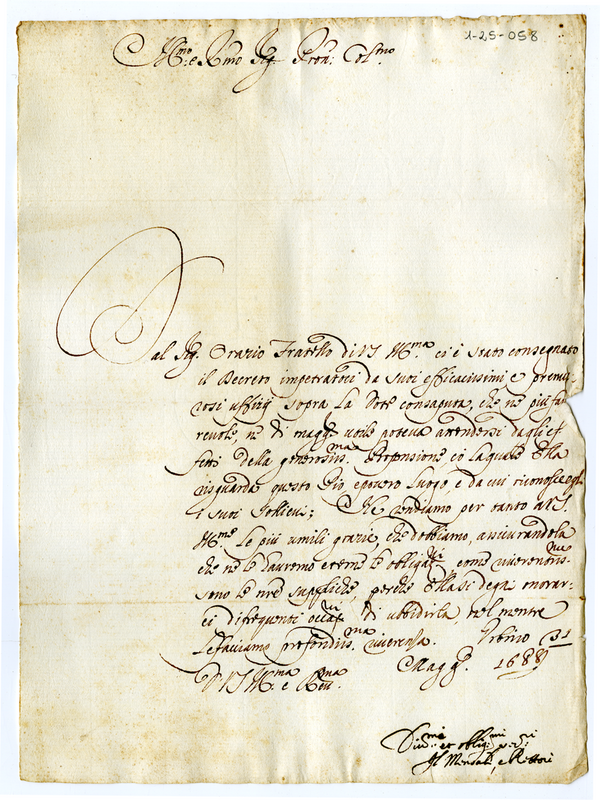 1-25-058
Ill.mo e R.mo Sig. Pron. Col.mo
Dal Sig. Orazio Fratello di V.S. Ill.ma ci è stato consegnato
il Decreto impetratoci da suoi efficacissimi e premu-
rosi uffitij sopra la Dote consaputa, che ne più fa
revole, ne di magg. utile poteva attendersi dagli ef
fetti della generosiss.ma Propensione, co la quale Ella
risguarda questo Pio e povero Luogo, e da cui riconosce
i suoi sollievi; Ne rendiamo per tanto a V.S.
Ill.ma le più umili grazie, che dobbiamo, assicurandola
che ne le havremo eterne le obligaz.ni, come riverentiss.me
sono le nre suppliche, perche Ella si degni onorar-
ci di frequenti occas.ni di ubbidirla, nel mentre
le facciamo profondiss.ma riverenza. Urbino 31
Magg. 1688
D. V.S. Ill.ma e Rev.ma
Div.mi et oblig.mi
e Rettori